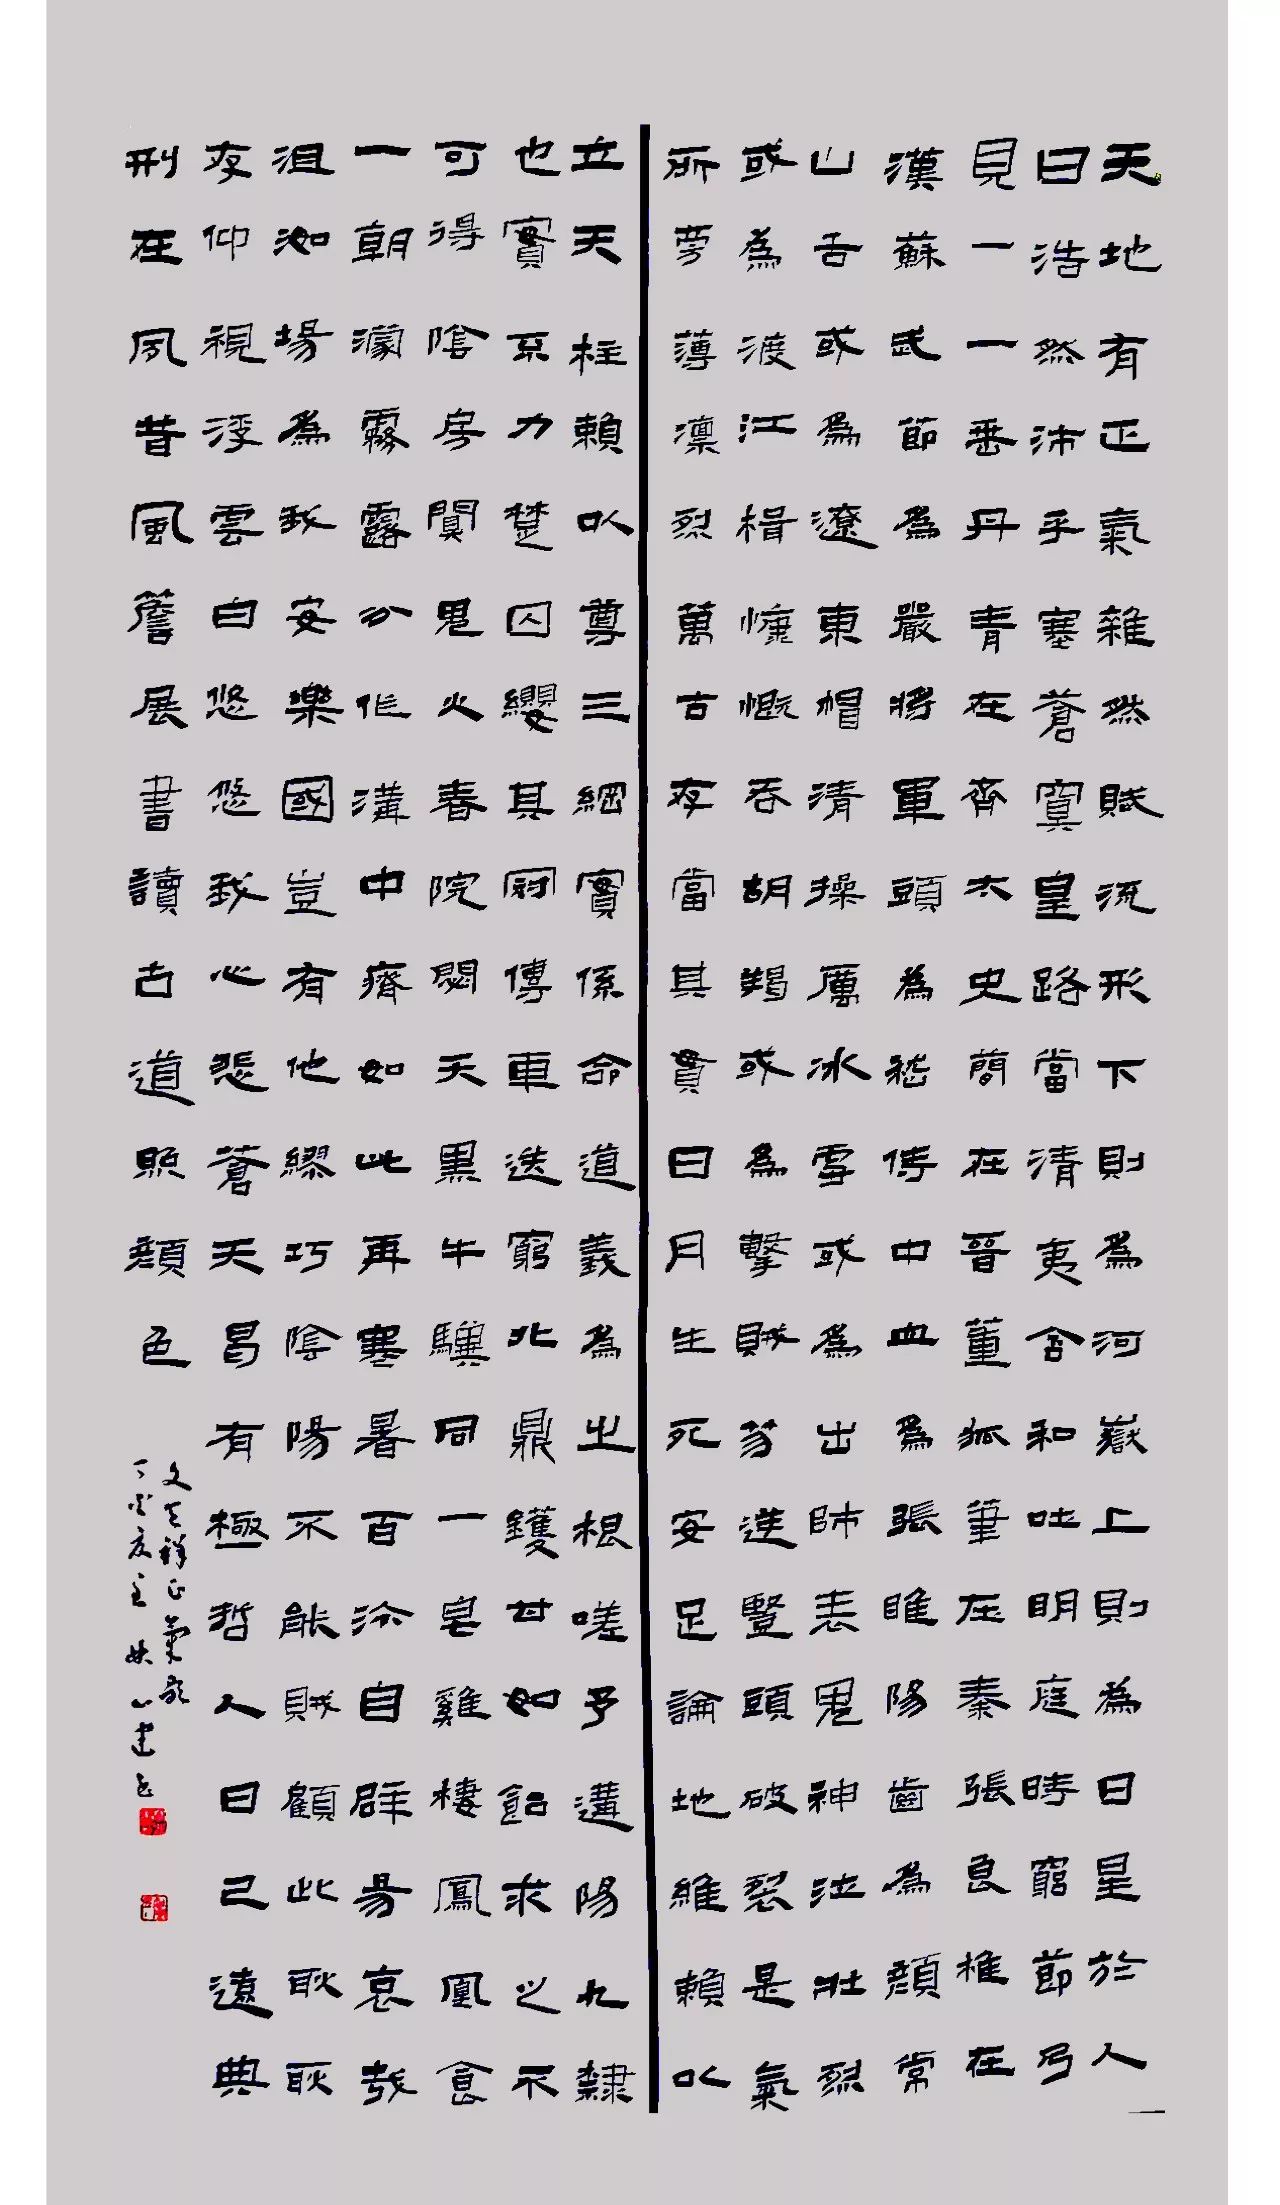 天地有正氣雜然賦流形下則為河嶽上則為日星於人
曰浩然沛乎塞蒼冥皇路當清夷含和吐明庭時窮節乃
見一一垂丹青在齊太史簡在晉董狐筆在秦張良椎在
漢蘇武節為嚴將軍頭為嵇侍中血為張睢陽齒為顏常
山舌或為遼東帽清操厲冰雪或為出師表鬼神泣壯烈
或為渡江楫慷慨吞胡羯或為擊賊笏逆豎頭破裂是氣
所旁薄凜烈萬古存當其貫日月生死安足論地維賴以
立天柱賴以尊三綱實係命道義為之根嗟予遘陽九隸
也實不力楚囚纓其冠傳車送窮北鼎鑊甘如飴求之不
可得陰房闃鬼火春院閟天黑牛驥同一皂雞棲鳳凰食
一朝濛霧露分作溝中瘠如此再寒暑百沴自辟易哀哉
沮洳場為我安樂國豈有他繆巧陰陽不能賊顧此耿耿
存仰視浮雲白悠悠我心悲蒼天曷有極哲人日已遠典
刑在夙昔風簷展書讀古道照顏色
文天祥正氣歌
丁亥夏至